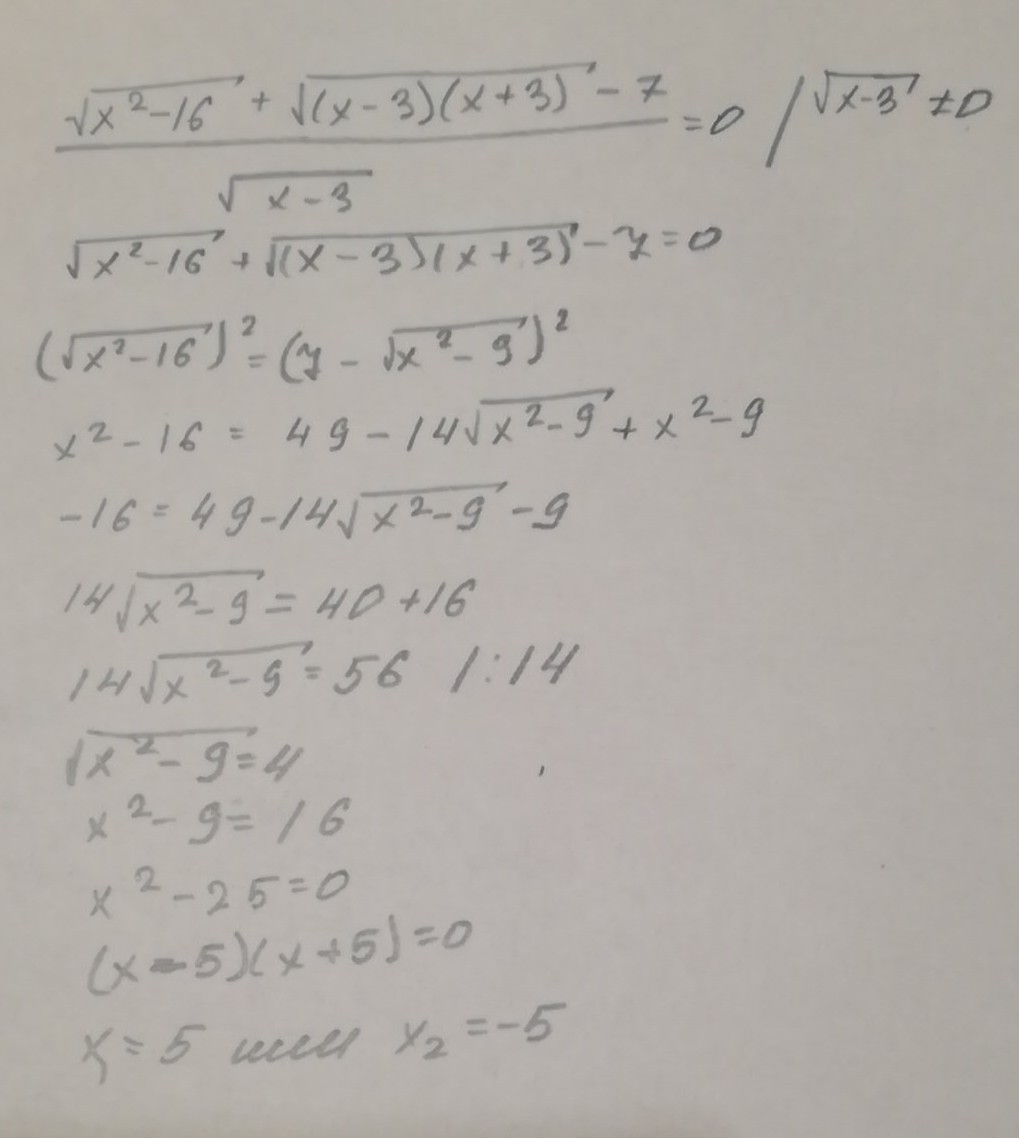 (√(x²-16) + √((x-3)(x+3)) - 7) / √(x-3) = 0 / √(x-3) ≠ 0
√(x²-16) + √((x-3)(x+3)) - 7 = 0
(√(x²-16))² = (7 - √(x²-9))²
x²-16 = 49-14√(x²-9) + x²-9
-16 = 49-14√(x²-9) -9
14√(x²-9) = 40+16
14√(x²-9) = 56 |:14
√(x²-9) = 4
x²-9 = 16
x²-25=0
(x-5)(x+5)=0
x₁=5 или x₂=-5